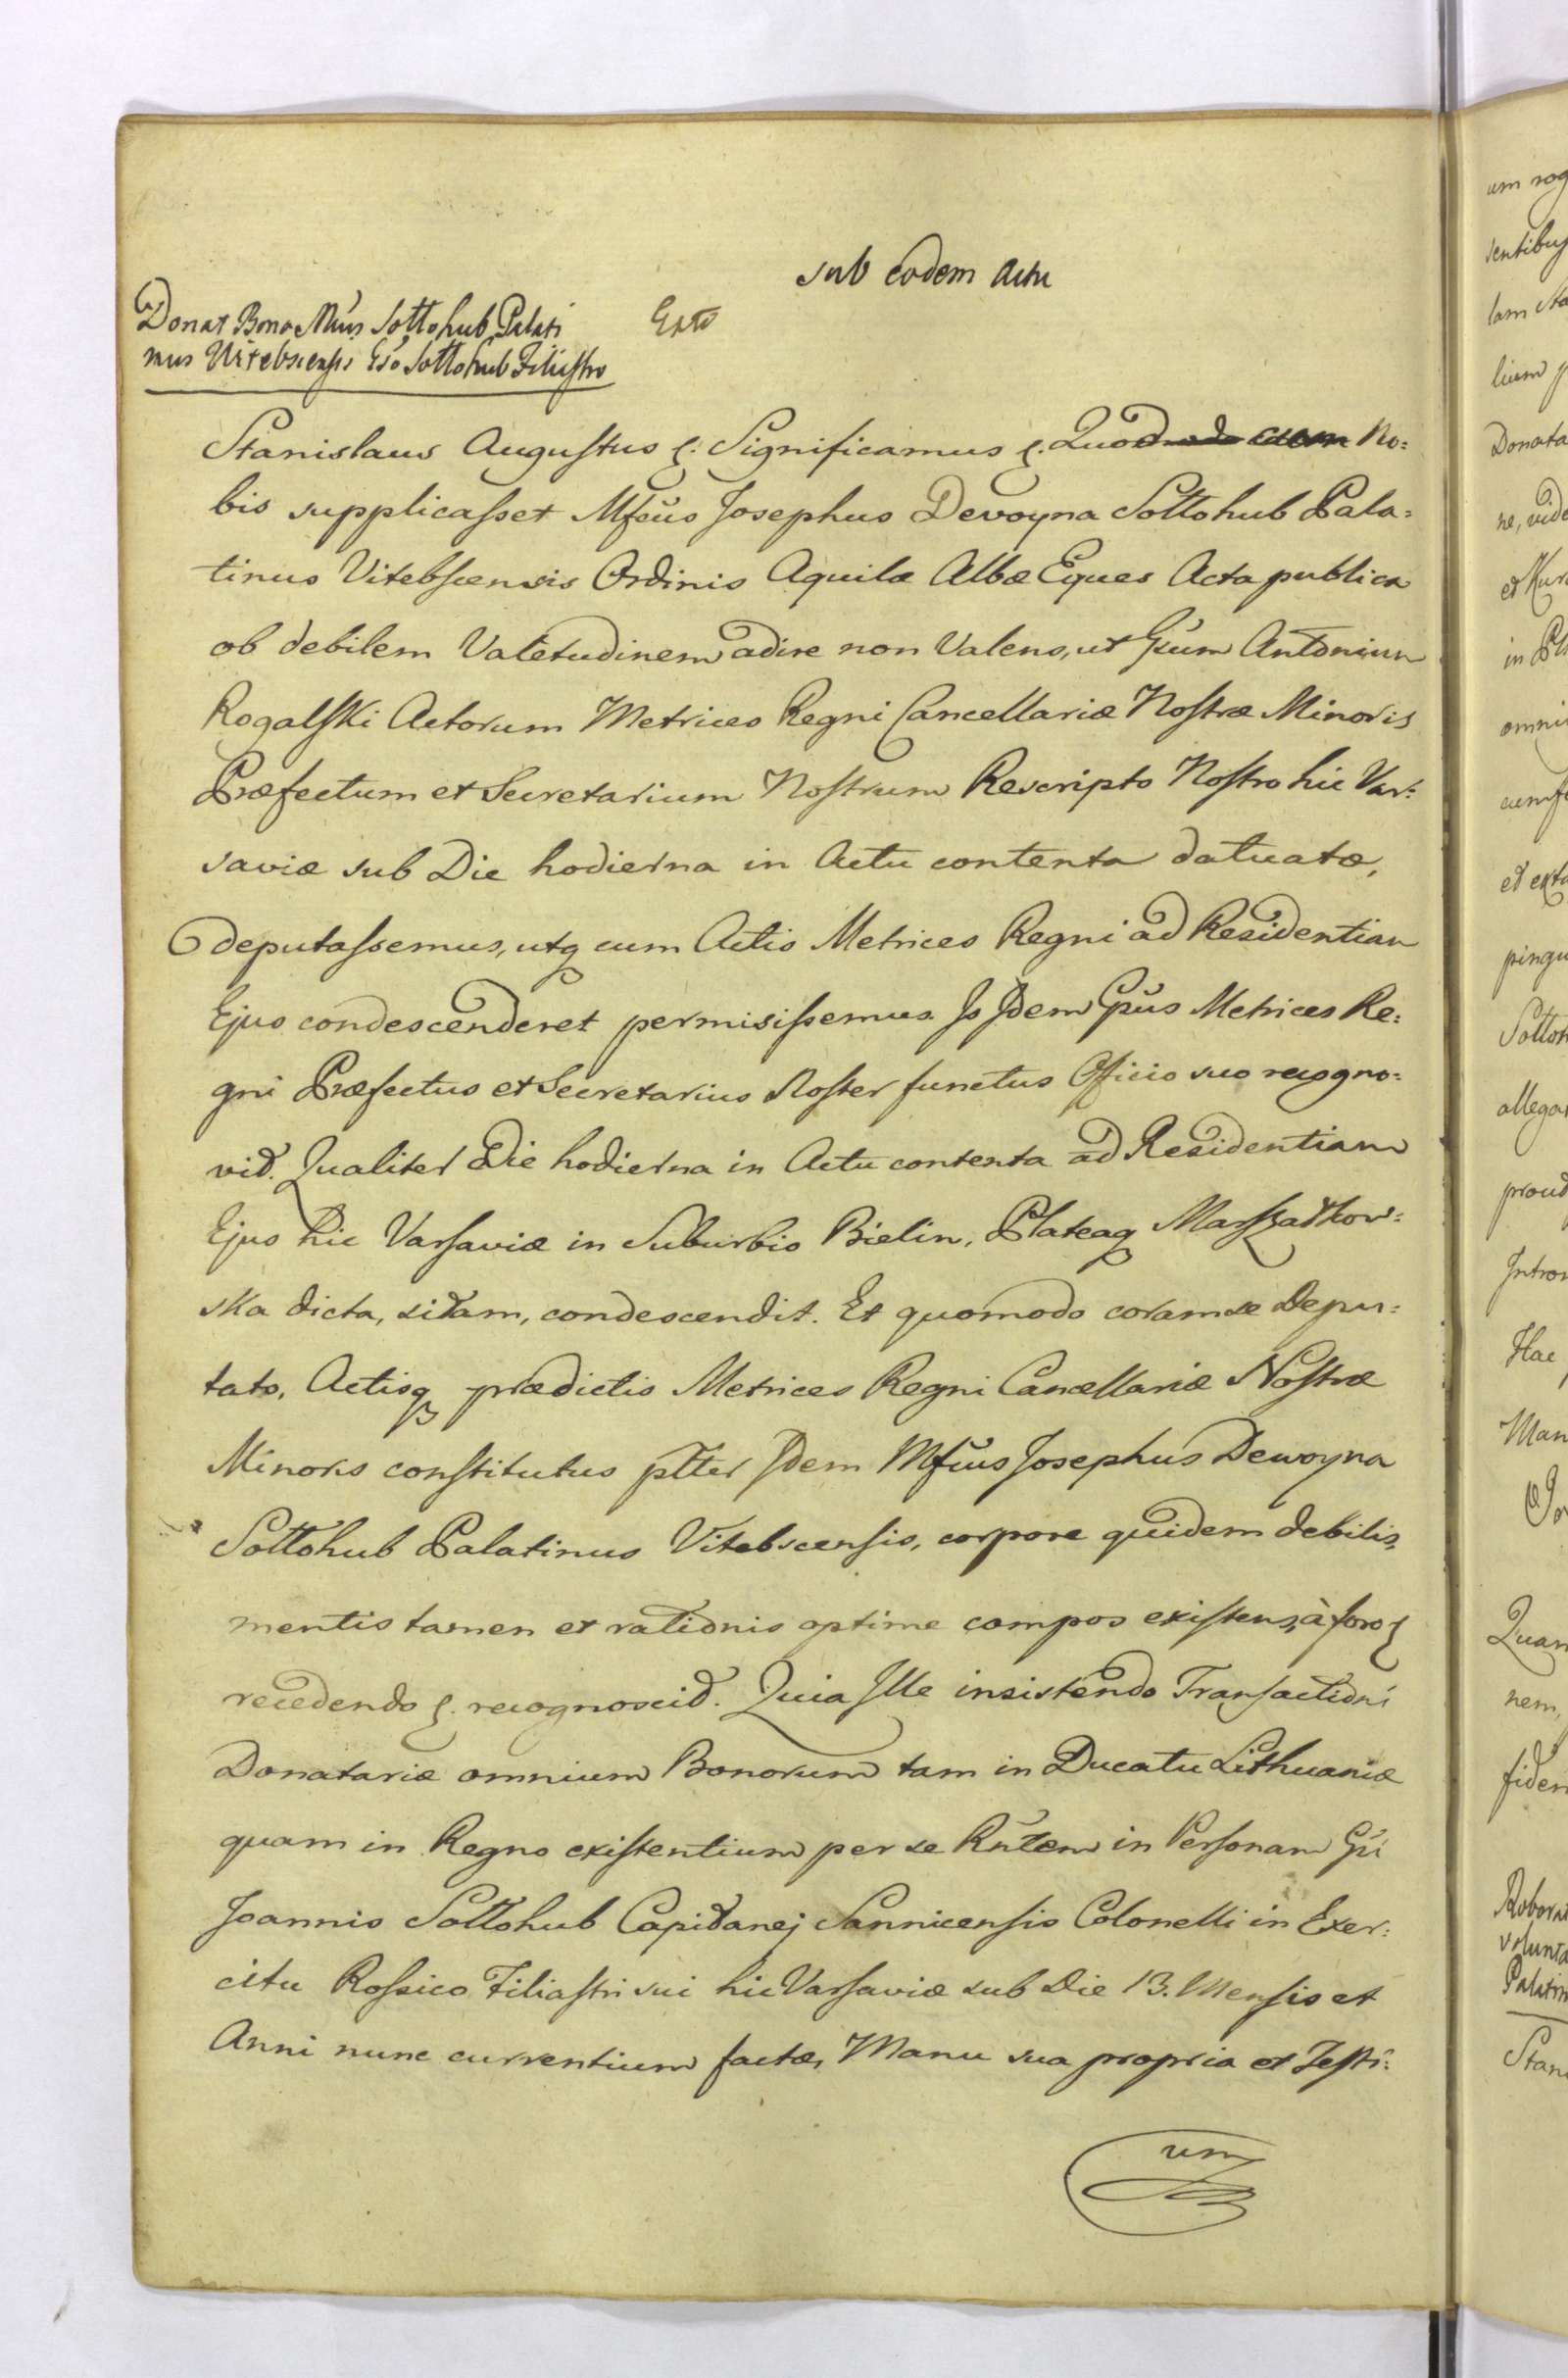 sub eodem Actu
Donat Bona Mfcus Sołłohub Palati
nus Vitebscensis Gso Sołłohub Filiastro
Exto
Stanislaus Augustus ꝛ. Significamus ꝛ. Quod No:
bis supplicasset Mfcus Josephus Devoyna Sołłohub Pala:
tinus Vitebscensis Ordinis Aquilæ Albæ Eques Acta publica
ob debilem Valetudinem adire non Valens, ut Gsum Antonium
Rogalski Actorum Metrices Regni Cancellariæ Nostræ Minoris
Præfectum et Secretarium Nostrum Rescripto Nostro hic Var:
saviæ sub Die hodierna in Actu contenta datuatæ,
deputassemus, utq cum Actis Metrices Regni ad Residentiam
Ejus condescenderet permisissemus. Is Idem Gsus Metrices Re:
gni Præfectus et Secretarius Noster functus Officio suo recogno:
vit. Qualiter Die hodierna in Actu contenta ad Residentiam
Ejus hic Varsaviæ in Suburbio Bielin, Plateaq Marszałkow:
ska dicta, sitam, condescendit. Et quomodo coram se Depu:
tato, Actisq prædictis Metrices Regni Cancellariæ Nostræ
Minoris constitutus plter Idem Mfcus Josephus Dewoyna
Sołłohub Palatinus Vitebscensis, corpore quidem debilis,
mentis tamen et rationis optime compos existens, à foro ꝛ
recedendo ꝛ. recognoscit. Quia Ille insistendo Transactioni
Donatariæ omnium Bonorum tam in Ducatu Lithuaniæ
quam in Regno existentium per se Rntem in Personam Gsi
Joannis Sołłohub Capitanej Sannicensis Colonelli in Exer:
citu Rossico Filiastri sui hic Varsaviæ sub Die 13. Mensis et
Anni nunc currentium factæ, Manu sua propria et Testi:
um